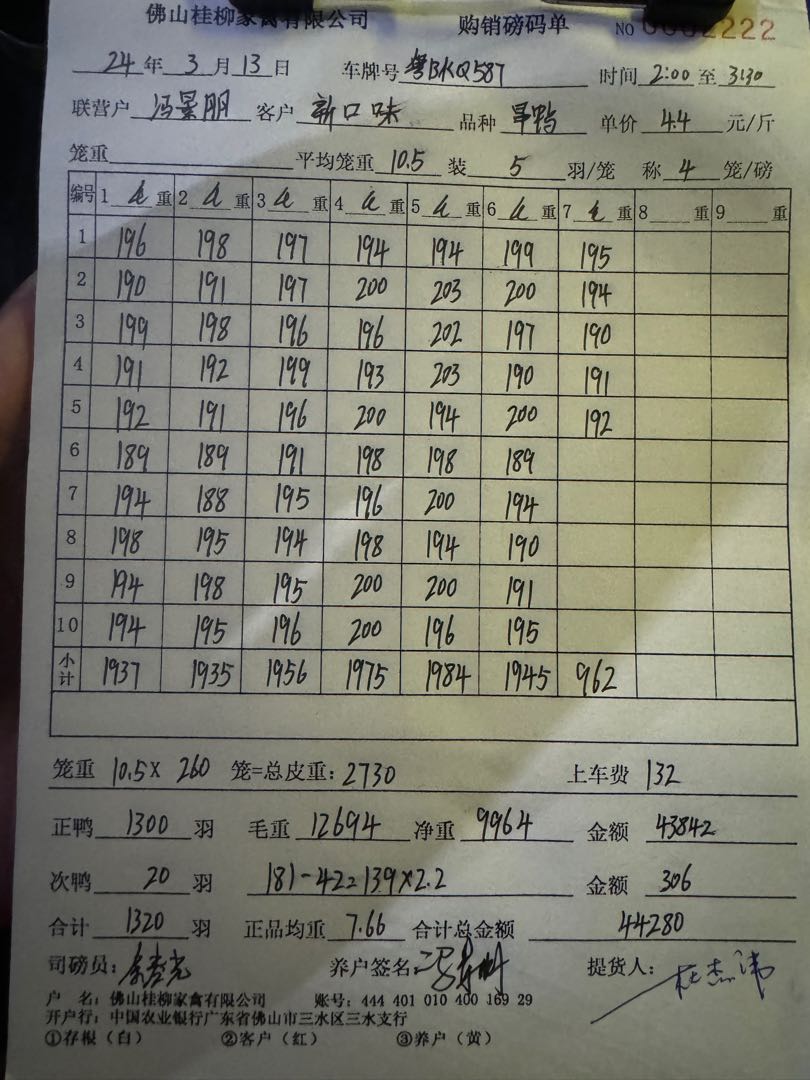 佛山桂柳家禽有限公司 购销磅码单 NO 0002222
24 年 3 月 13 日 车牌号 粤BKQ587 时间 2:00 至 3:30
联营户 冯景朋 客户 新口味 品种 旱鸭 单价 4.4 元/斤
笼重 平均笼重 10.5 装 5 羽/笼 称 4 笼/磅
编号 1 重 2 重 3 重 4 重 5 重 6 重 7 重 8 重 9 重
1 196 198 197 194 194 199 195
2 190 191 197 200 203 200 194
3 199 198 196 196 202 197 190
4 191 192 199 193 203 190 191
5 192 191 196 200 194 200 192
6 189 189 191 198 198 189
7 194 188 195 196 200 194
8 198 195 194 198 194 190
9 194 198 195 200 200 191
10 194 195 196 200 196 195
小计 1937 1935 1956 1975 1984 1945 962
笼重 10.5× 260 笼=总皮重: 2730 上车费 132
正鸭 1300 羽 毛重 12694 净重 9964 金额 43842
次鸭 20 羽 181-42=139×2.2 金额 306
合计 1320 羽 正品均重 7.66 合计总金额 44280
司磅员: 养户签名: 提货人:
户 名: 佛山桂柳家禽有限公司 账号: 444 401 010 400 169 29
开户行: 中国农业银行广东省佛山市三水区三水支行
①存根(白) ②客户(红) ③养户(黄)